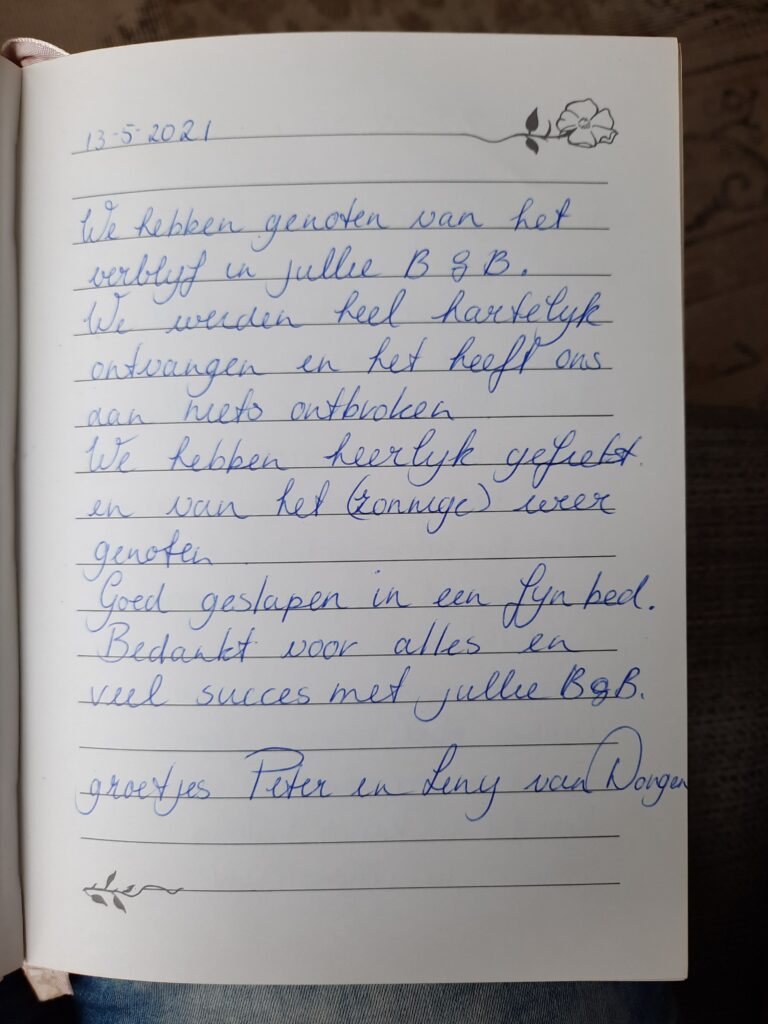 13-5-2021
We hebben genoten van het
verblyf in jullie B & B.
We werden heel hartelyk
ontvangen en het heeft ons
aan niets ontbroken
We hebben heerlyk gefietst
en van het (zonnige) weer
genoten
Goed geslapen in een fyn bed.
Bedankt voor alles en
veel succes met jullie B&B.
groetjes Peter en Leny van Dongen